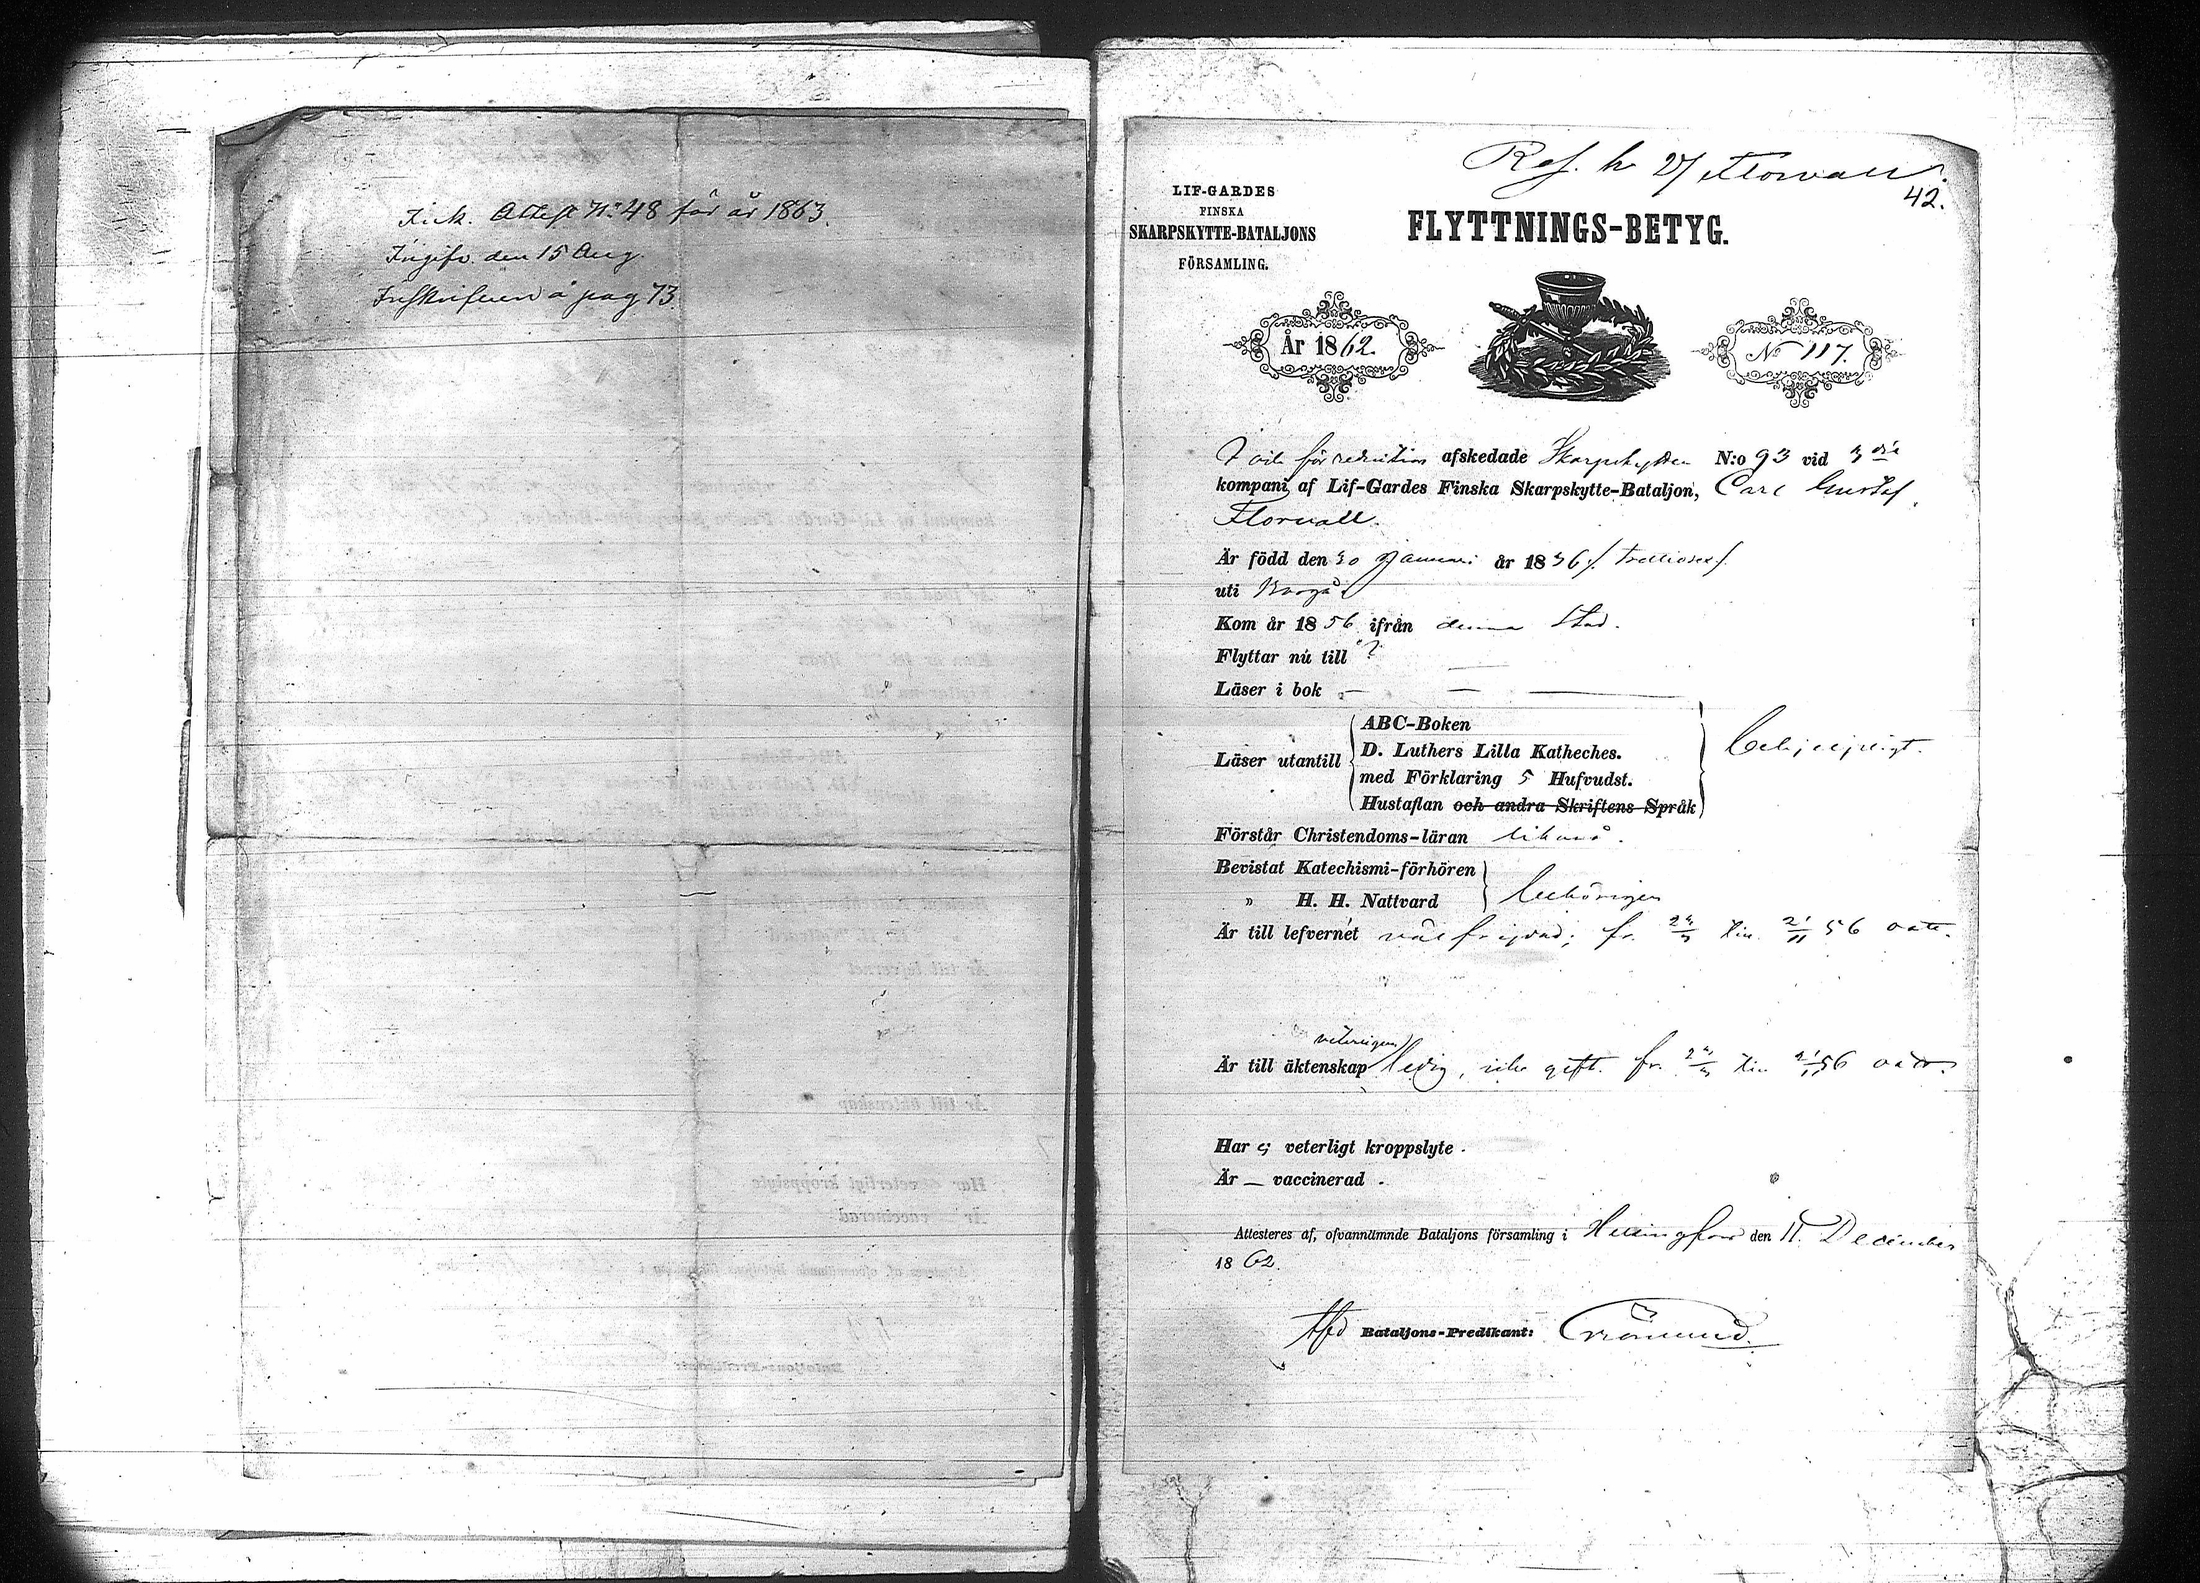 Fick. Attest N:o 48 för år 1863.
Ingifv. den 15 Aug.
Inskrifven å pag 73
42.
LIF-GARDES
FINSKA
SKARPSKYTTE-BATALJONS
FÖRSAMLING.
FLYTTNINGS-BETYG.
År 1862.
No 117.
vid reduktion afskedade Skarpskytten N:o 93 vid 3die
kompani af Lif-Gardes Finska Skarpskytte-Bataljon, Carl Gustaf
Florvall.
Är född den 30 Januari år 1836 /: trettiosex /.
uti Borgå
Kom år 1856 ifrån denna Stad.
Flyttar nu till ?
Läser i bok — — —
Läser utantill
ABC-Boken
D. Luthers Lilla Katheches.
med Förklaring 5 Hufvudst.
Hustaflan och andra Skriftens Språk
Förstår Christendoms-läran likaså.
Bevistat Katechismi-förhören
" H. H. Nattvard
behörigen
Är till lefvernet välfrejdad; fr. 56
veterligen
Är till äktenskap ledig, icke gift. fr. 56
Har ej veterligt kroppslyte.
Är — vaccinerad.
Attesteres af, ofvannämnde Bataljons församling i Helsingfors den 11. December
1862.
Bataljons-Predikant: